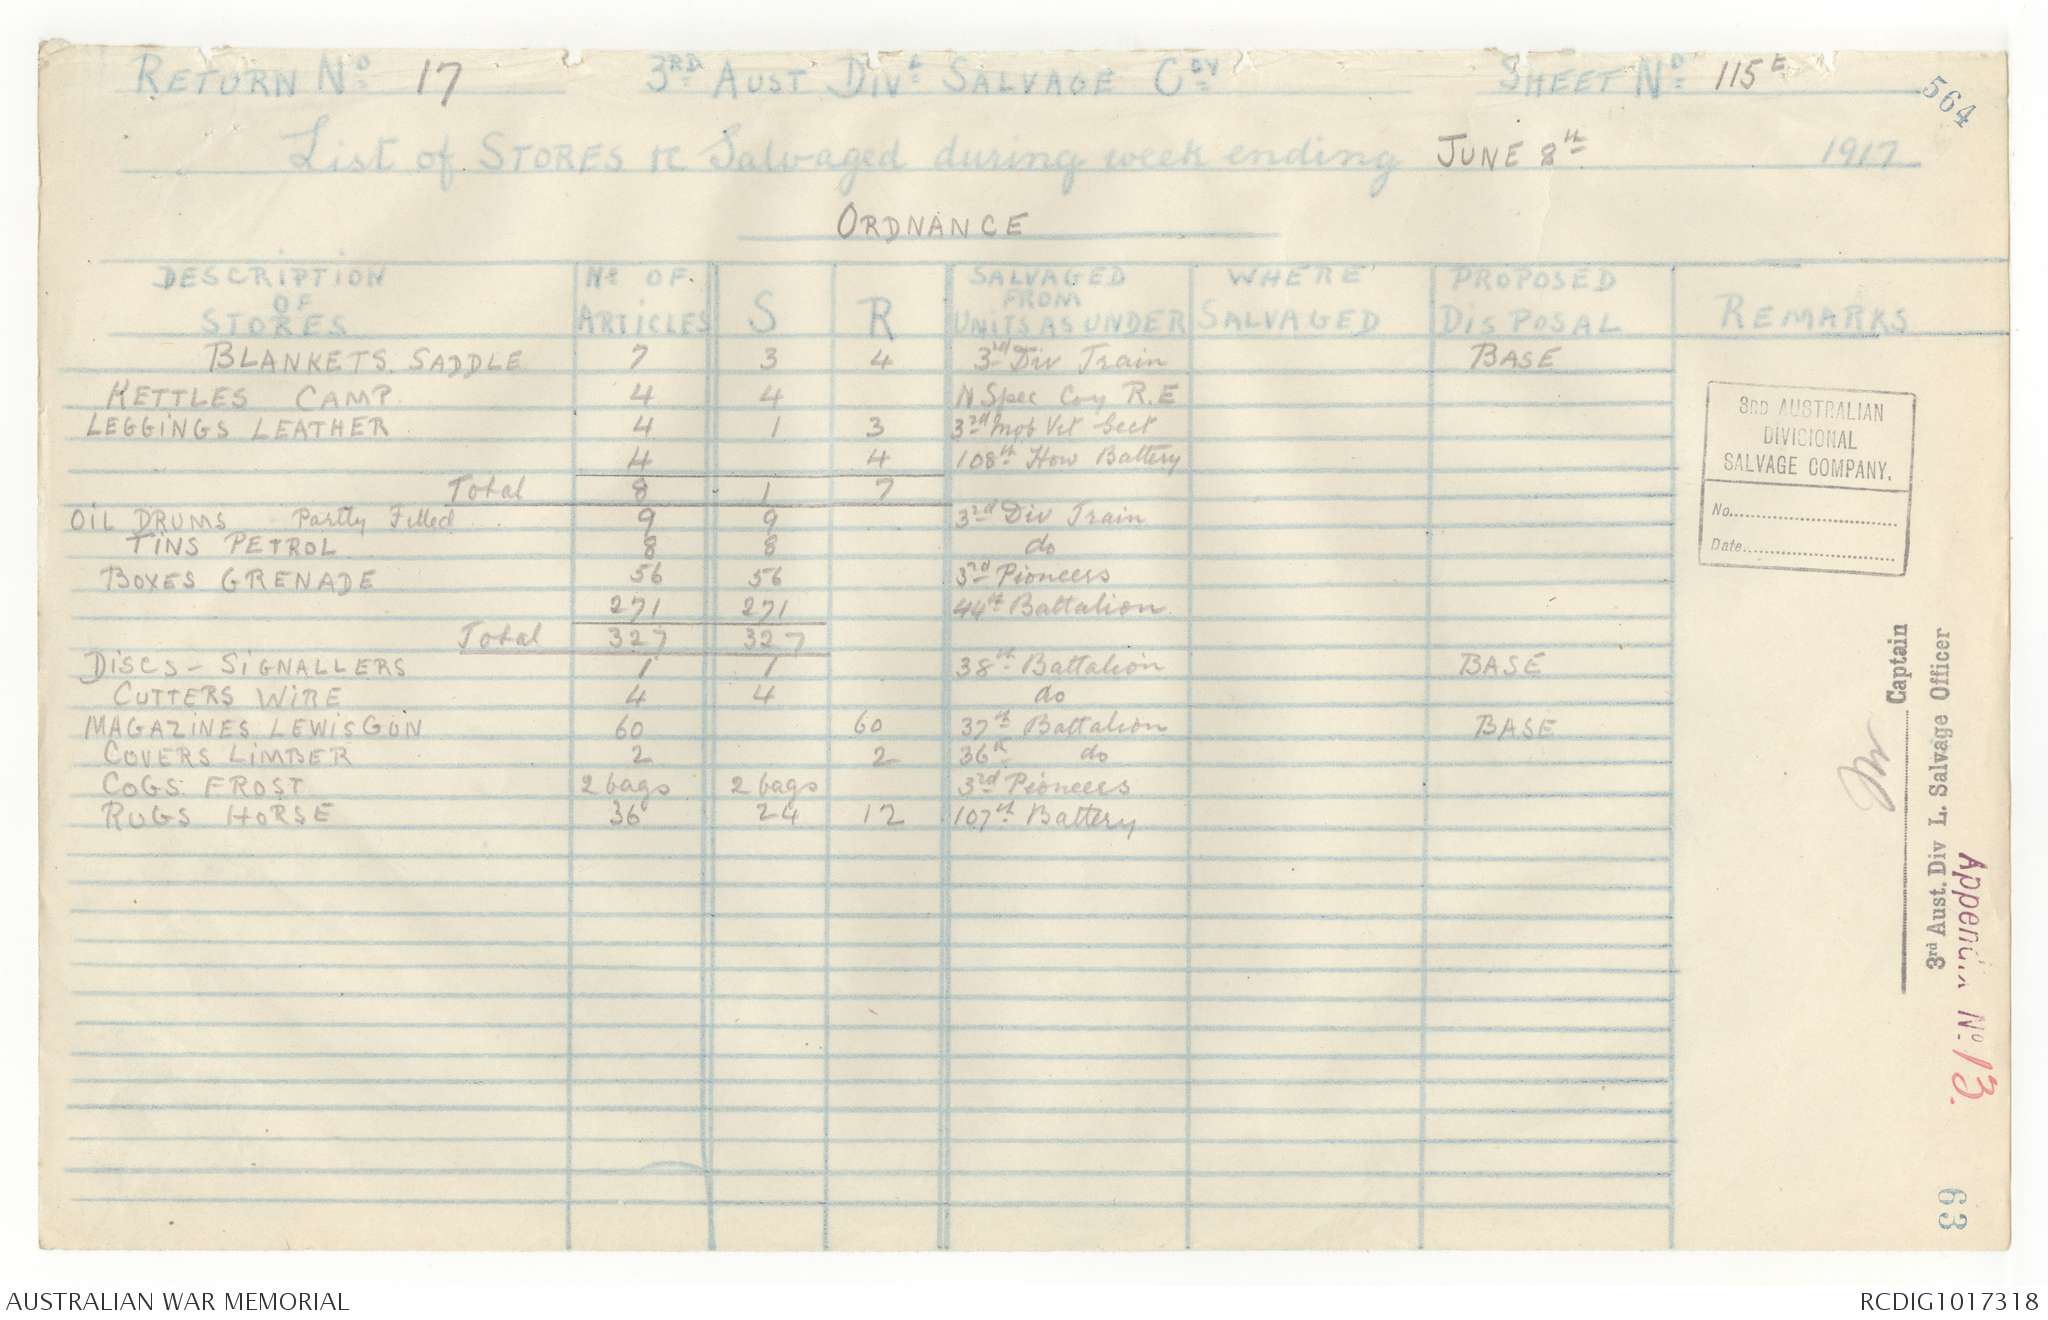 RETURN No 17 3RD AUST DIVL SALVAGE COY SHEET No 115E
564
List of STORES &c Salvaged during week ending JUNE 8th 1917
ORDNANCE
DESCRIPTION OF STORES No OF ARTICLES S R SALVAGED FROM UNITS AS UNDER WHERE SALVAGED PROPOSED DISPOSAL REMARKS
BLANKETS. SADDLE 7 3 4 3rd Div Train BASE
KETTLES CAMP. 4 4 N Spec Coy R.E
LEGGINGS LEATHER 4 1 3 3rd Mob Vet Sect
4 4 108th How Battery
Total 8 1 7
OIL DRUMS Partly Filled 9 9 3rd Div Train
TINS PETROL 8 8 do
BOXES GRENADE 56 56 3rd Pioneers
271 271 44th Battalion
Total 327 327
DISCS - SIGNALLERS 1 1 38th Battalion BASE
CUTTERS WIRE 4 4 do
MAGAZINES LEWIS GUN 60 60 37th Battalion BASE
COVERS LIMBER 2 2 36th do
COGS. FROST 2 bags 2 bags 3rd Pioneers
RUGS HORSE 36 24 12 107th Battery
3RD AUSTRALIAN
DIVISIONAL
SALVAGE COMPANY.
No.
Date
Captain
3rd Aust. Div L. Salvage Officer
Appendix No. 13.
63
AUSTRALIAN WAR MEMORIAL
RCDIG1017318